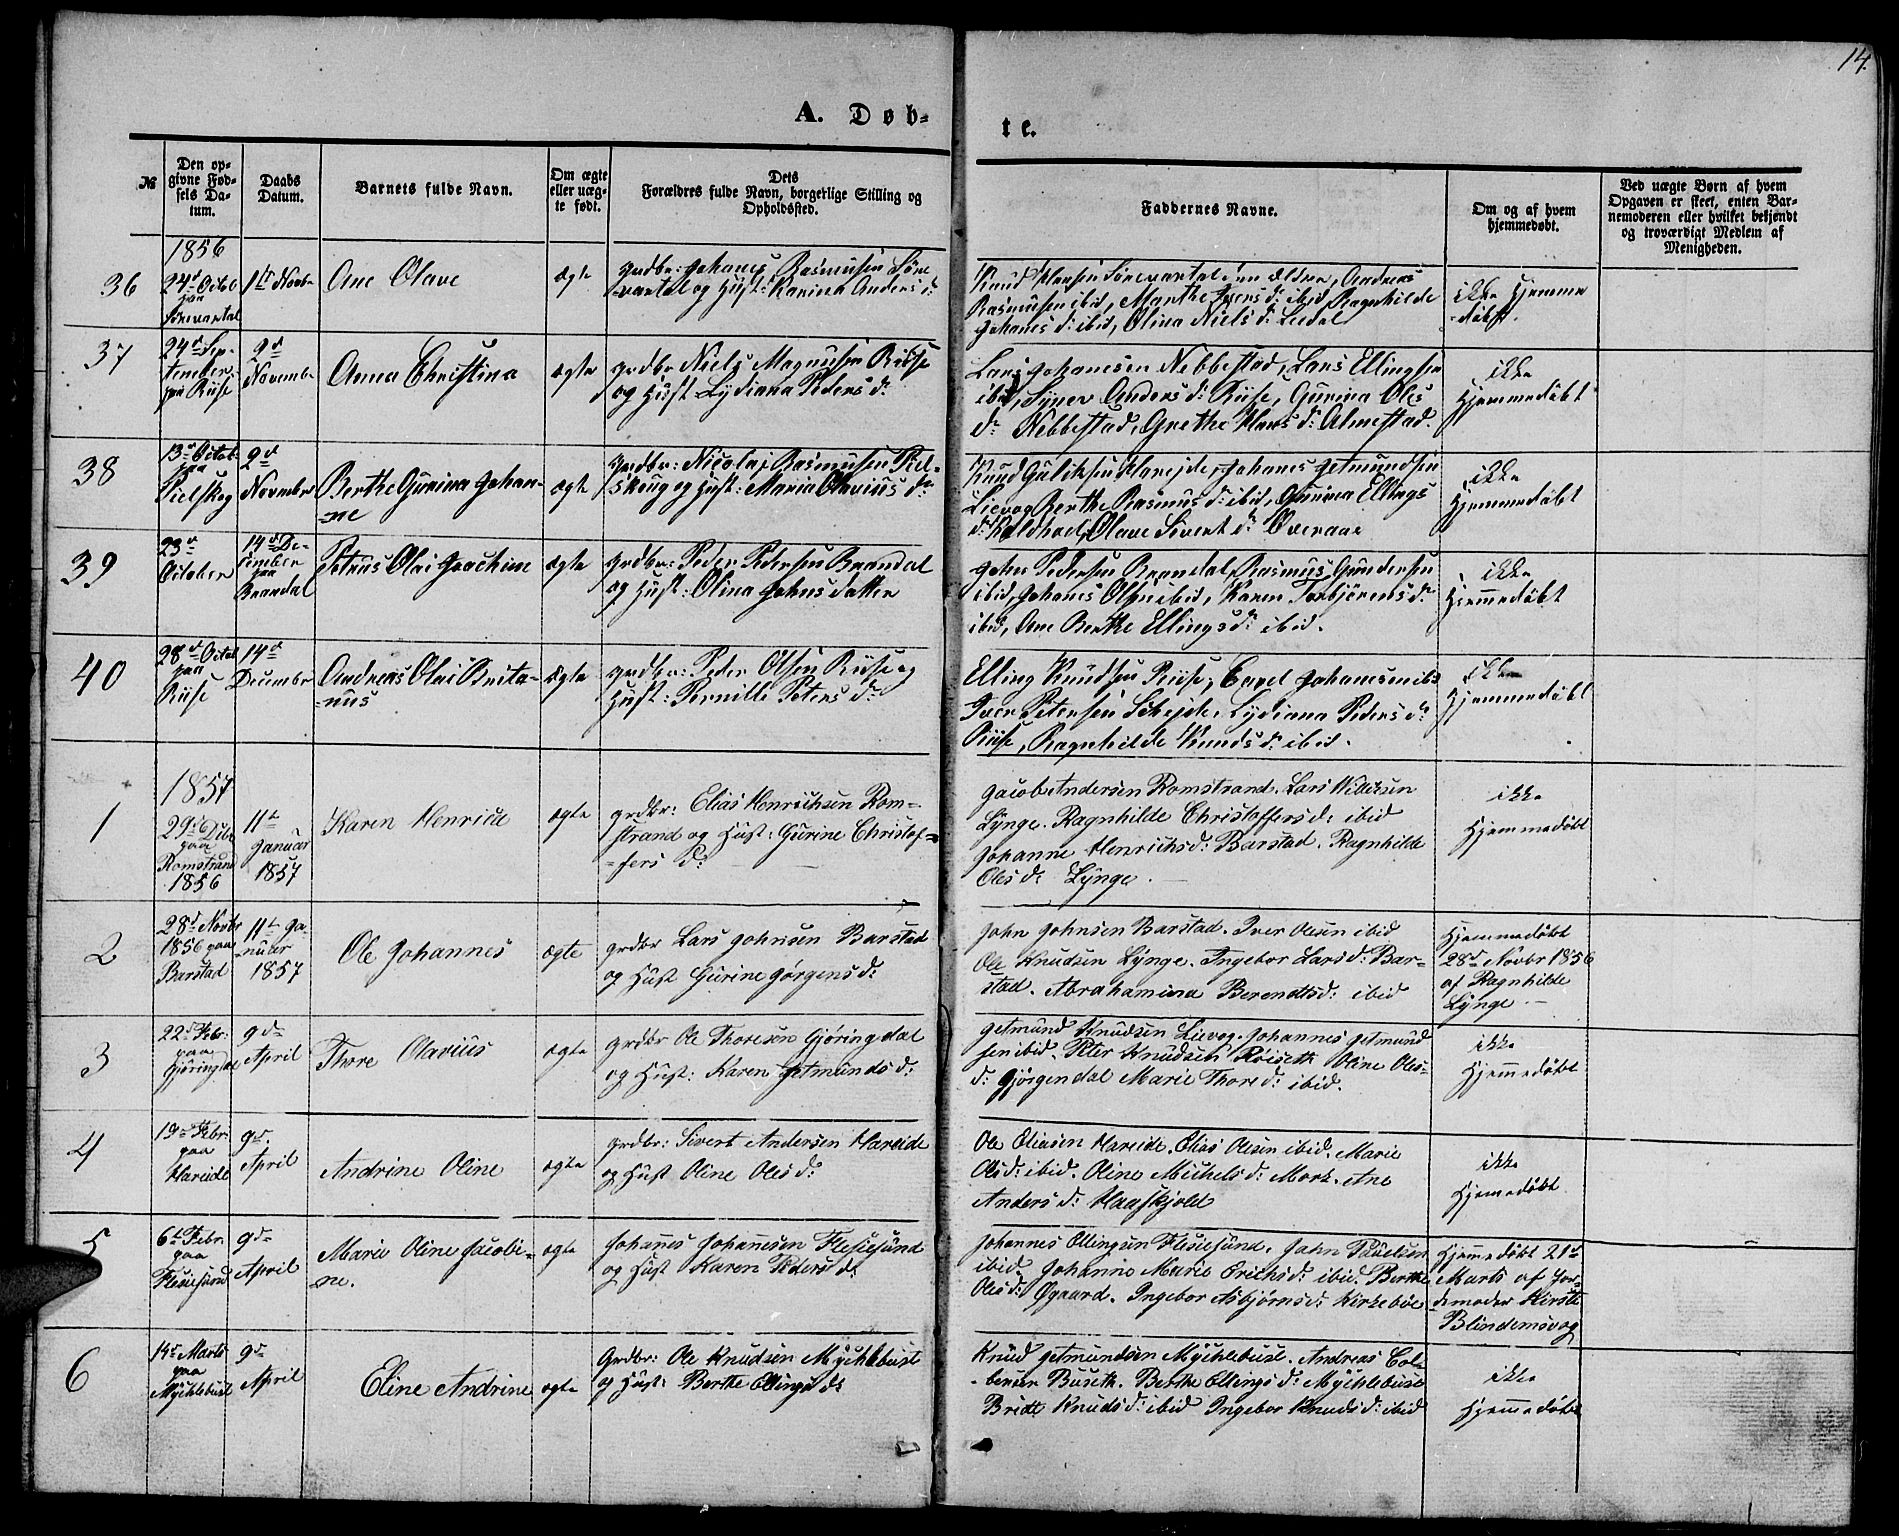 14.
A. Døb-
te.
№
Den op-
givne Fød-
sels Da-
tum.
Daabs
Datum.
Barnets fulde Navn.
Om ægte
eller uæg-
te født.
Dets
Forældres fulde Navn, borgerlige Stilling og
Opholdssted.
Faddernes Navne.
Om og af hvem
hjemmedøbt.
Ved uægte Børn af hvem
Opgaven er skeet, enten Bar-
nemoderen eller hvilket bekjendt
og troværdigt Medlem af
Menigheden.
1856
36
24d Octob
paa
Sørevartdal
1te Novbr
Ane Olave
ægte
Grdbr: Johanes Rasmusen Søre
vartdal og Hust: Karina Anders d:
Knud Hansen Sørevartdal den Ældre, Andreas
Rasmusen ibid, Marthe Ivers d: ibid Ragnhilde
Johanes d: ibid, Olina Niels d: Liedal
ikke Hjemme
-døbt.
37
24d Sep-
tember
paa Riise
2d
Novembr
Anna Christina
ægte
Grdbr Niels Magnusen Riise
og Hust Lydiana Peders d:
Lars Johanesen Nebbestad, Lars Ellingsen
ibid, Synev Anders d: Riise, Gurina Oles
d: Nebbestad, Grethe Hans d: Almestad.
ikke
Hjemmedøbt
38
13d Octob
paa
Pielskog
9d
Novembr
Berthe Gurina Johan-
-ne
ægte
Grdbr: Nicolaj Rasmusen Piel-
skoug og Hust: Maria Olavius d:
Knud Guliksen Harejde, Johanes Getmundsen
Lievog Berthe Rasmus d: ibid, Gurina Ellings
d: Kaldhol, Olave Sivert d: Overaae
ikke
Hjemmedøbt
39
23d
October
14d De-
cember
paa
Brandal
Petrus Olai Joachim
ægte
Grdbr: Peder Pedersen Brandal
og Hust: Olina Johns datter
John Pedersen Brandal, Rasmus Gundersen
ibid, Johanes Olsen ibid, Karen Torbjørens d:
ibid, Ane Berthe Ellings d: ibid.
ikke
Hjemmedøbt
40
28d Octob
paa
Riise
14d
Decembr
Andreas Olai Brita-
-nus
ægte
Grdbr: Peder Olsen Riise og
Hust: Pernille Peters d:
Elling Knudsen Riise, Carel Johanesen ibd
Iver Petersen Skejde, Lydiana Peders d:
Riise, Ragnhilde Knuds d: ibid.
ikke
Hjemmedøbt
1857
1
29d Dcbr
paa
Romstrand
1856
11te
Januar
1857
Karen Henrice
ægte
Grdbr: Elias Henrichsen Rom-
strand og Hust: Gurine Christof-
-fers d:
Jacob Andersen Romstrand. Lars Nielsen
Lynge. Ragnhilde Christoffers d: ibid
Johanne Henrichs d: Barstad. Ragnhilde
Oles d: Lynge.
ikke
Hjemmedøbt
2
28d Novbr
1856 paa
Barstad
11te Ja-
nuar
1857
Ole Johannes
ægte
Grdbr Lars Johnsen Barstad
og Hust Gurine Jørgens d:
John Johnsen Barstad. Iver Olsen ibid
Ole Knudsen Lynge. Ingebor Lars d: Bar-
stad. Abrahamina Berendts d: ibid
Hjemmedøbt
28d Novbr 1856
af Ragnhilde
Lynge.
3
22d Febr:
paa
Gjøringdal
9d
April
Thore Olavius
ægte
Grdbr Ole Thoresen Gjøringdal
og Hust: Karen Getmunds d:
Getmund Knudsen Lievog. Johannes Getmund
sen ibid. Peter Knudsen Røiseth Oline Oles-
d: Gjørgendal Marie Thore d: ibid.
ikke
Hjemmedøbt
4
19d Febr.
paa
Hareide
9d.
April
Andrine Oline
ægte
Grdbr: Sivert Andersen Hareide
og Hust Oline Oles d:
Ole Eliasen Hareide. Elias Olesen ibid. Marie
Ols d: ibid. Oline Michels d: Mork. Ane
Anders d: Haaskjold
ikke
Hjemedøbt
5
6te Febr.
paa
Flesiesund
9d
April
Marie Oline Jacobi-
ne.
ægte
Johanes Johanesen Flesiesund
og Hust Karen Peders d:
Johannes Ellingsen Flesiesund. John Poulsen
ibid. Johanne Marie Erichs d: ibid. Berthe
Oles d: Øgaard. Ingebor Asbjørns d: Kirkebøe
Hjemedøbt 21de
Marts af Jor-
demoder Kirsti
Blindemsvog
6
14d Marts
paa
Mychlebust
9d
April
Eline Andrine
ægte
Grdbr: Ole Knudsen Mychlebust
og Hust: Berthe Ellings d:
Knud Getmundsen Mychlebust. Andreas Col-
-bensen Buseth. Berthe Ellings d: Mychlebust
Bredt Knuds d: ibid Ingebor Knuds d: ibid
ikke
Hjemmedøbt